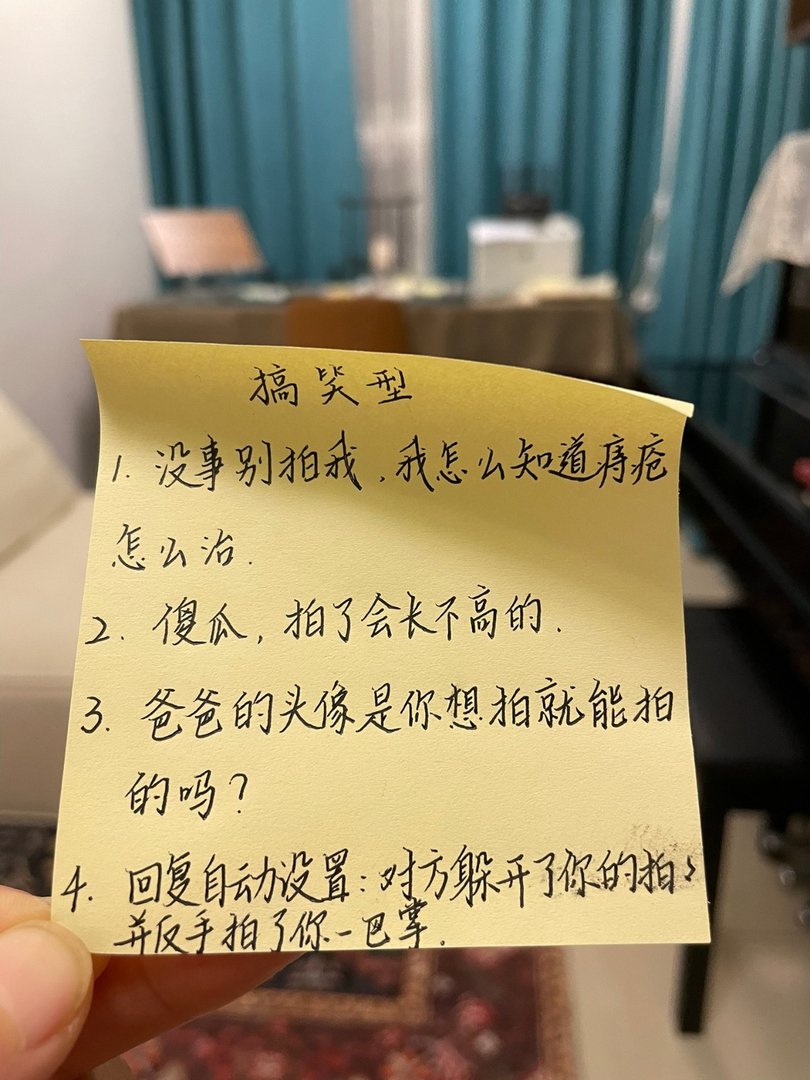 搞笑型
1. 没事别拍我,我怎么知道痔疮
怎么治.
2. 傻瓜,拍了会长不高的.
3. 爸爸的头像是你想拍就能拍
的吗?
4. 回复自动设置:对方躲开了你的拍
并反手拍了你一巴掌.